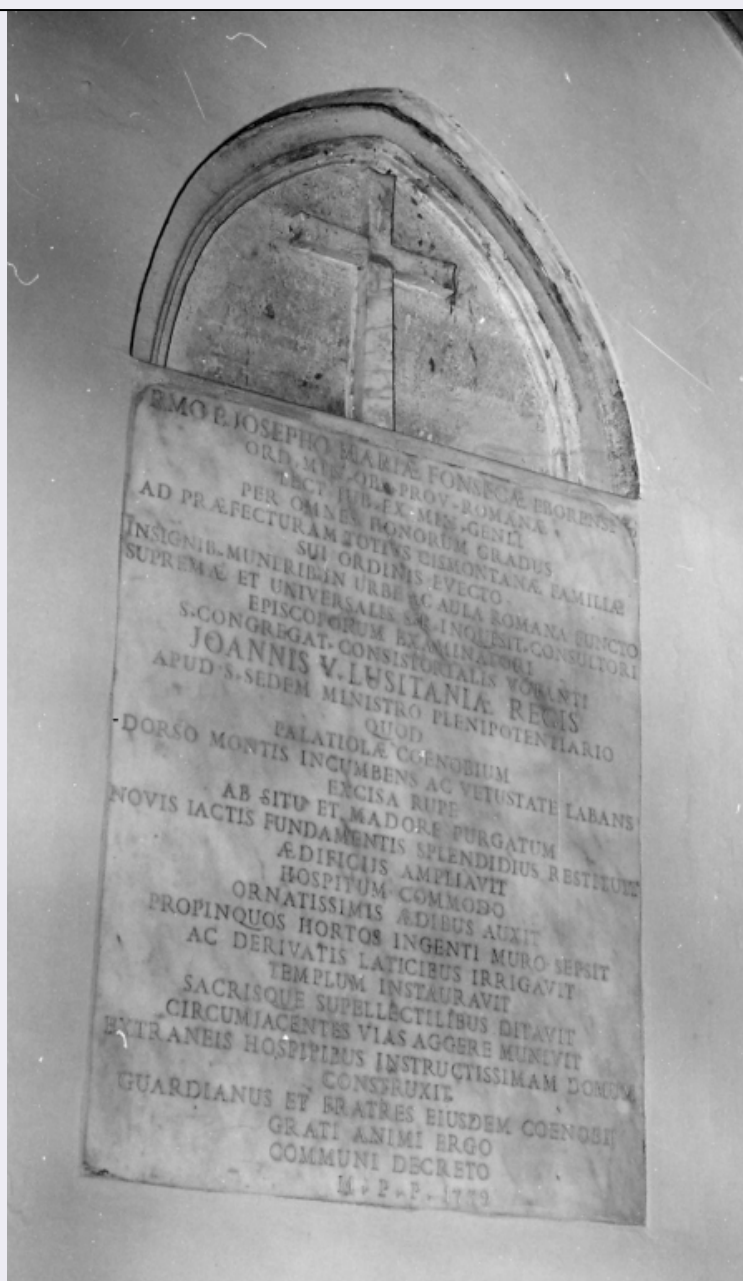 RMO P. JOSEPHO MARIÆ FONSECÆ EBORENSI
ORD. MIN. OBS. PROV. ROMANÆ
LECT. IUB. EX. MIN. GENLI
PER OMNES HONORUM GRADUS
AD PRÆFECTURAM TOTIVS CISMONTANÆ FAMILIÆ
SUI ORDINIS EVECTO
INSIGNIB. MUNERIB. IN URBE AC AULA ROMANA FUNCTO
SUPREMÆ ET UNIVERSALIS INQUISIT. CONSULTORI
EPISCOPORUM EXAMINATORI
S. CONGREGAT. CONSISTORIALIS VOTANTI
JOANNIS V. LUSITANIÆ REGIS
APUD S. SEDEM MINISTRO PLENIPOTENTIARIO
QUOD
PALATIOLÆ COENOBIUM
DORSO MONTIS INCUMBENS AC VETUSTATE LABANS
EXCISA RUPE
AB SITU ET MADORE PURGATUM
NOVIS IACTIS FUNDAMENTIS SPLENDIDIUS RESTITUIT
ÆDIFICIJS AMPLIAVIT
HOSPITUM COMMODO
ORNATISSIMIS ÆDIBUS AUXIT
PROPINQUOS HORTOS INGENTI MURO SEPSIT
AC DERIVATIS LATICIBUS IRRIGAVIT
TEMPLUM INSTAURAVIT
SACRISQUE SUPELLECTILIBUS DITAVIT
CIRCUMJACENTES VIAS AGGERE MUNIVIT
EXTRANEIS HOSPITIBUS INSTRUCTISSIMAM DOMUM
CONSTRUXIT
GUARDIANUS ET FRATRES EIUSDEM COENOBII
GRATI ANIMI ERGO
COMMUNI DECRETO
M. P. P. 1779